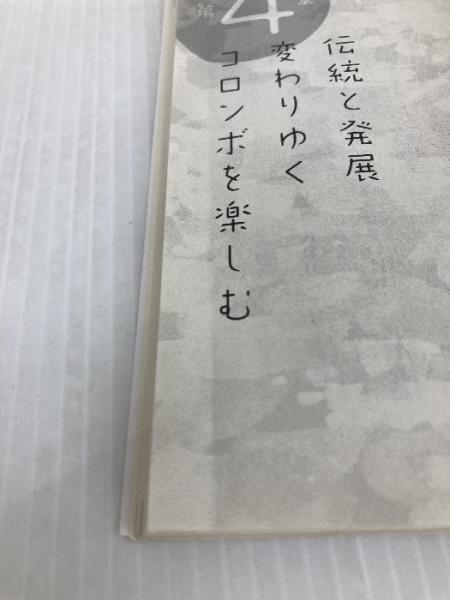 第4章
伝統と発展
変わりゆく
コロンボを楽しむ